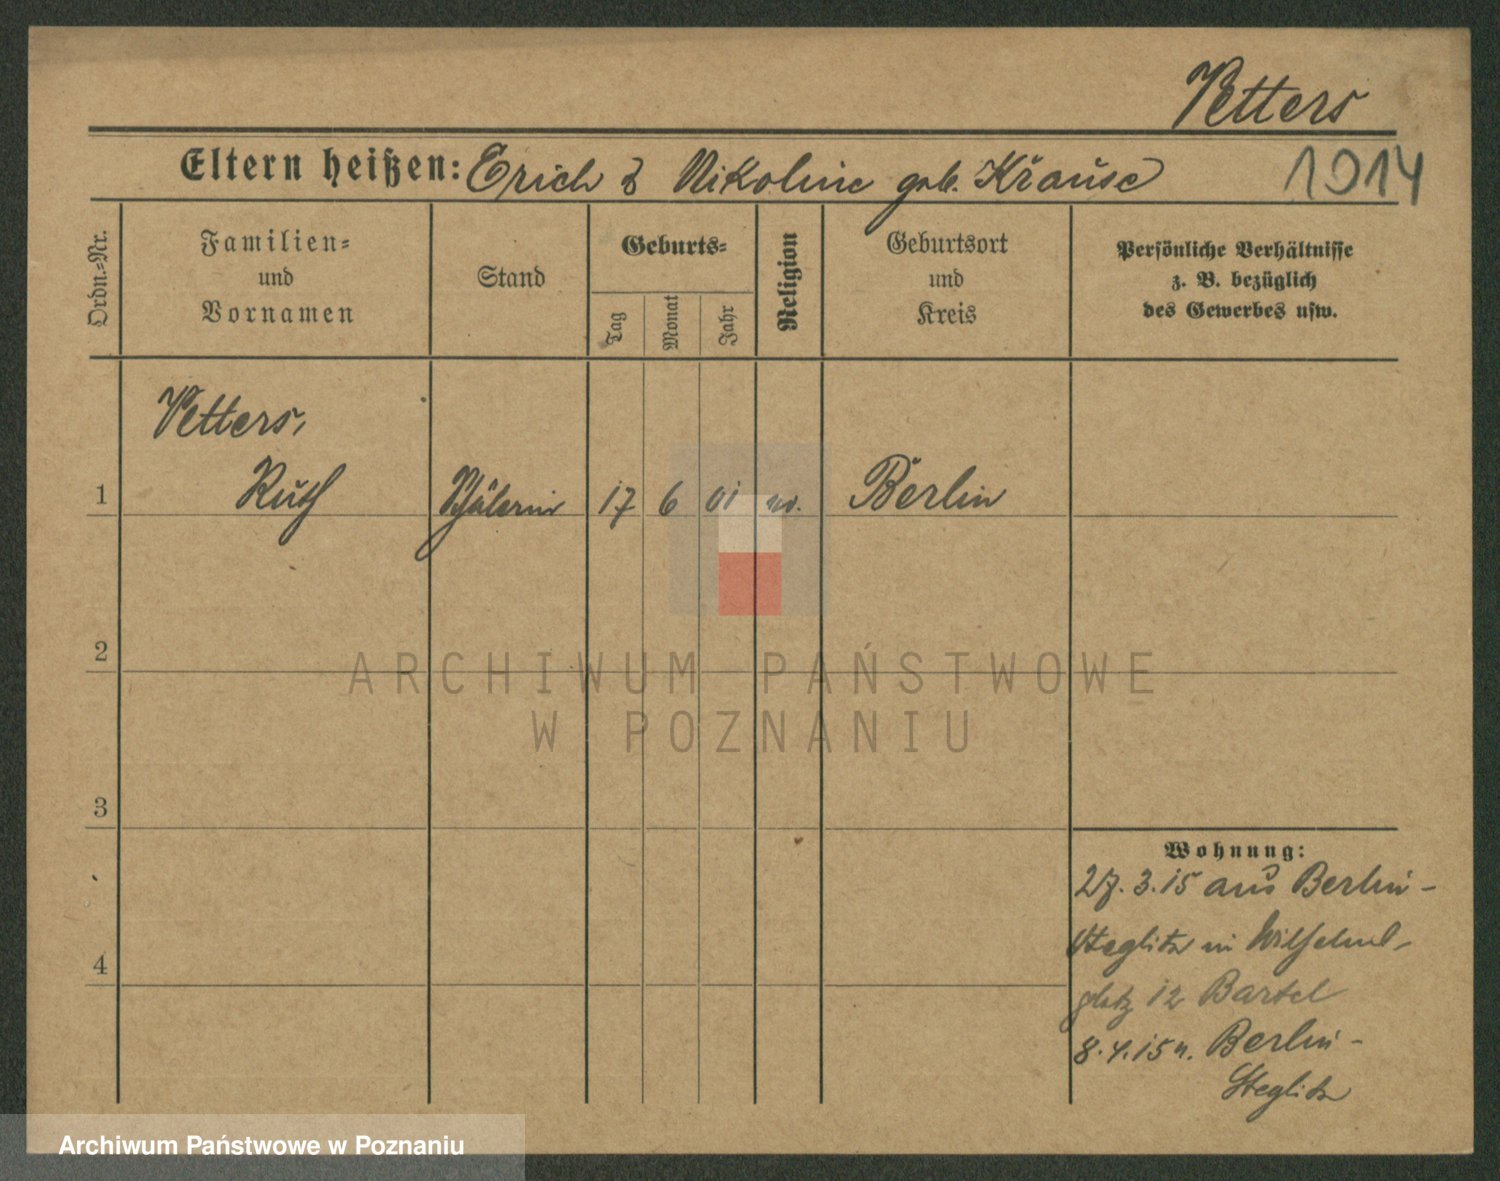 Vetters
Eltern heißen: Erich & Nikoline geb. Krause
1914
Ordn.=Nr.
Familien=
und
Vornamen
Stand
Geburts=
Tag
Monat
Jahr
Religion
Geburtsort
und
Kreis
Persönliche Verhältnisse
z. B. bezüglich
des Gewerbes usw.
Vetters,
1 Ruth Schülerin 17 6 01 ev. Berlin
2
3
4
Wohnung:
27.3.15 aus Berlin-
Steglitz in Wilhelms-
platz 12 Bartel
8.4.15 n. Berlin-
Steglitz
ARCHIWUM PAŃSTWOWE
W POZNANIU
Archiwum Państwowe w Poznaniu